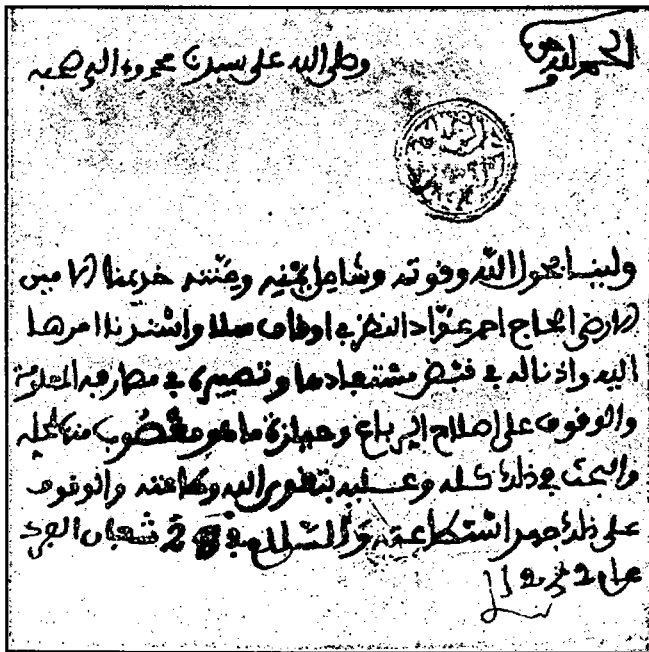 الحمد لله وحده
وصلى الله على سيدنا محمد وءاله وصحبه
ولينا بحول الله وقوته وشامل يمنه ومنته خديمنا الامين
الارضى الحاج احمد عواد النظر في اوقاف سلا واسندنا امرها
اليه واذنا له في قبض مستفادها وتصييره في مصارفه المعلومة
والوقوف على اصلاح الرباع وحيازة ما هو مغصوب منها
والبحث في ذلك كله وعليه بتقوى الله وطاعته والوقوف
على ذلك جهد استطاعته والسلام في 2 شعبان
عام